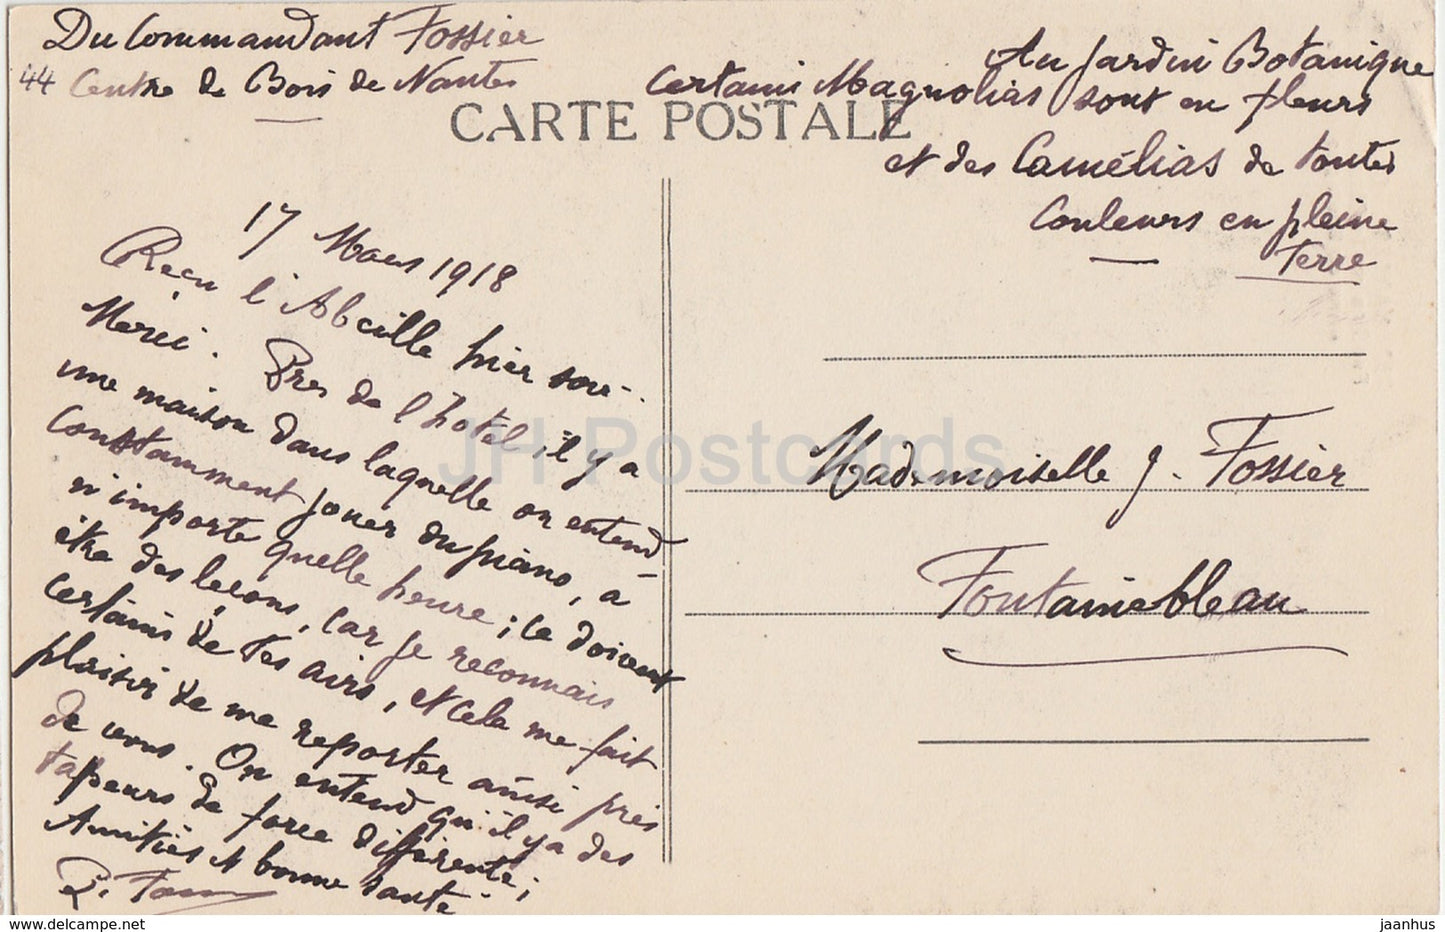 Du Commandant Fossier
44 Centre de Bois de Nantes
CARTE POSTALE
Au Jardin Botanique
certains Magnolias sont en fleurs
et des Camélias de toutes
Couleurs en pleine
Terre
17 Mars 1918
Reçu l'Abeille hier soir.
Merci. Près de l'hotel, il y a
une maison dans laquelle on entend
constamment jouer du piano, à
n'importe quelle heure; ce doivent
être des leçons, car je reconnais
certains de tes airs, et cela me fait
plaisir de me reporter ainsi près
de vous. On entend qu'il y a des
tapeurs de force différente;
Amitiés et bonne santé
Mademoiselle J. Fossier
Fontainebleau
JH Postcards
www.delcampe.net
jaanhus